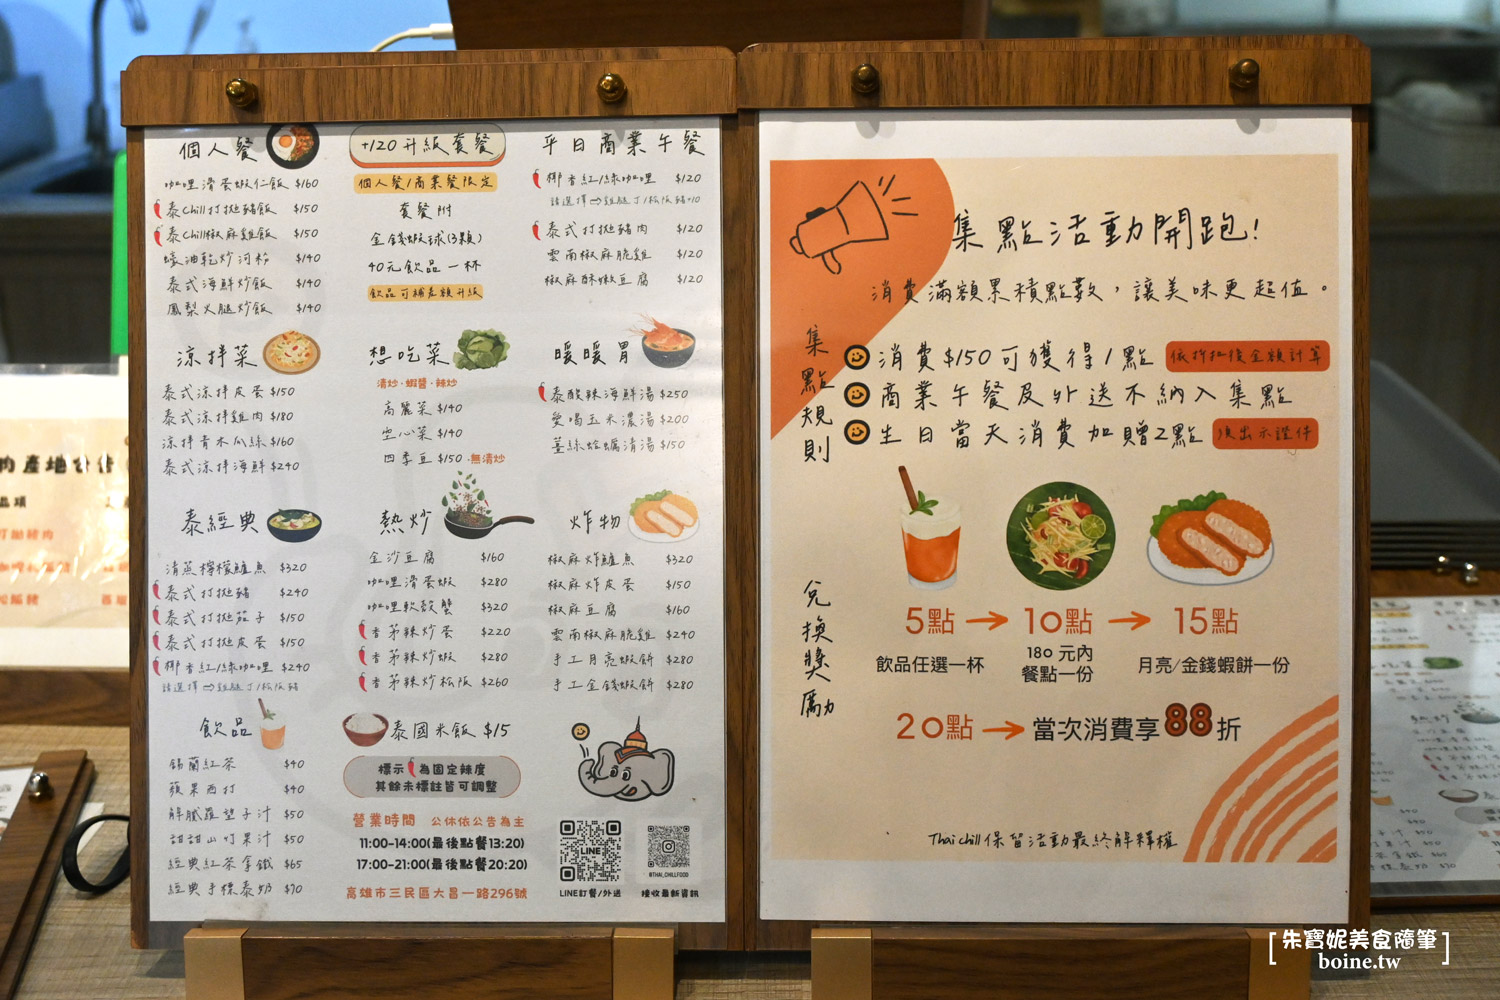 個人餐
咖哩滑蛋蝦仁飯 $160
泰Chill打拋豬飯 $150
泰Chill椒麻雞飯 $150
蠔油乾炒河粉 $140
泰式海鮮炒飯 $140
鳳梨火腿炒飯 $140
+120升級套餐
個人餐/商業餐限定
套餐附
金錢蝦球(3顆)
40元飲品一杯
飲品可補差額升級
平日商業午餐
椰香紅/綠咖哩 $120
請選擇⇨雞腿丁/松阪豬+10
泰式打拋豬肉 $120
雲南椒麻脆雞 $120
椒麻酥嫩豆腐 $120
涼拌菜
泰式涼拌皮蛋 $150
泰式涼拌雞肉 $180
涼拌青木瓜絲 $160
泰式涼拌海鮮 $240
想吃菜
清炒·蝦醬·辣炒
高麗菜 $140
空心菜 $140
四季豆 $150 ·無清炒
暖暖胃
泰酸辣海鮮湯 $250
愛喝玉米濃湯 $200
薑絲蛤蠣清湯 $150
泰經典
清蒸檸檬鱸魚 $320
泰式打拋豬 $240
泰式打拋茄子 $150
泰式打拋皮蛋 $150
椰香紅/綠咖哩 $240
請選擇⇨雞腿丁/松阪豬
熱炒
金沙豆腐 $160
咖哩滑蛋蝦 $280
咖哩軟殼蟹 $320
香茅辣炒蛋 $220
香茅辣炒蝦 $280
香茅辣炒松阪 $260
炸物
椒麻炸鱸魚 $320
椒麻炸皮蛋 $150
椒麻豆腐 $160
雲南椒麻脆雞 $240
手工月亮蝦餅 $280
手工金錢蝦餅 $280
飲品
錫蘭紅茶 $40
蘋果西打 $40
解膩羅望子汁 $50
甜甜山竹果汁 $50
經典紅茶拿鐵 $65
經典手標泰奶 $70
泰國米飯 $15
標示為固定辣度
其餘未標註皆可調整
營業時間 公休依公告為主
11:00-14:00(最後點餐13:20)
17:00-21:00(最後點餐20:20)
高雄市三民區大昌一路296號
LINE
LINE訂餐/外送
@THAI_CHILLFOOD
接收最新資訊
集點活動開跑!
消費滿額累積點數，讓美味更超值。
集點規則
消費$150可獲得1點 依折扣後金額計算
商業午餐及外送不納入集點
生日當天消費加贈2點 須出示證件
兌換獎勵
5點→10點→15點
飲品任選一杯
180元內
餐點一份
月亮/金錢蝦餅一份
20點→當次消費享88折
Thai chill保留活動最終解釋權
[朱寶妮美食隨筆]
boine.tw